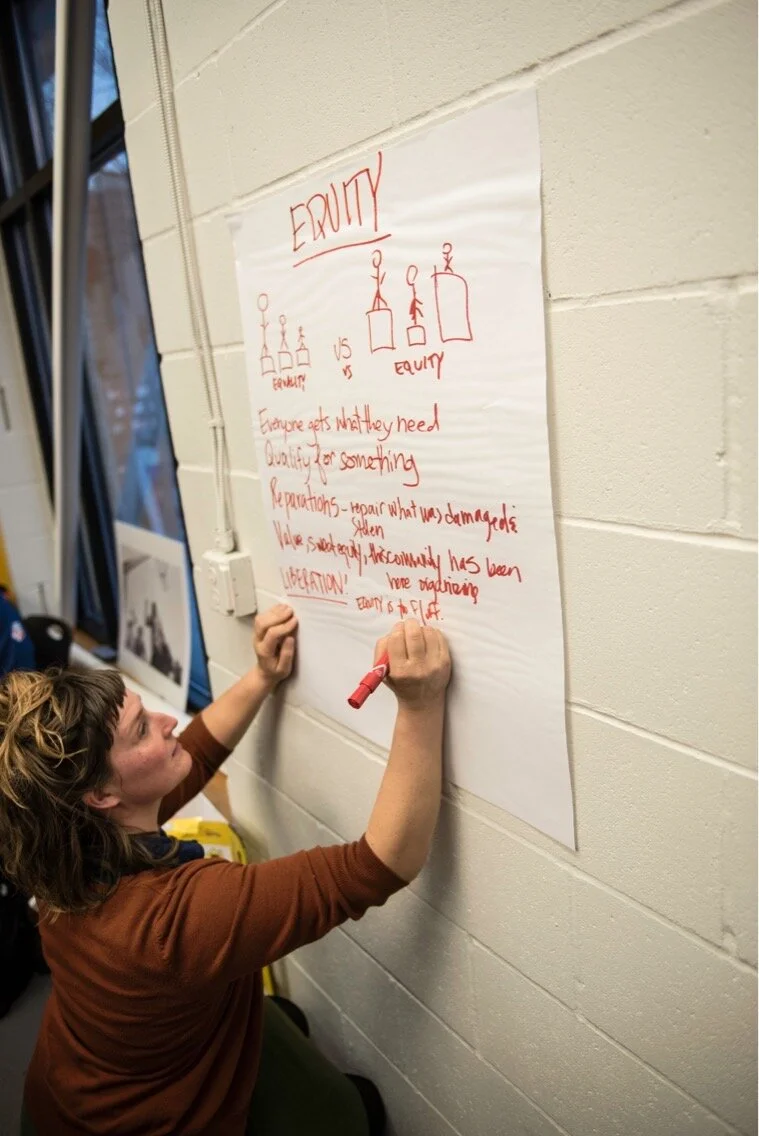 EQUITY
VS
vs
EQUALITY
EQUITY
Everyone gets what they need
Qualify for something
Reparations - repair what was damaged &
Stolen
Value, sweat equity, this community has been
here organizing
LIBERATION!
EQUITY is